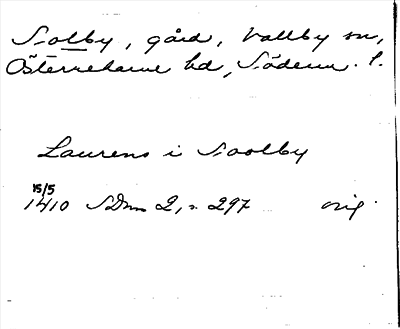 Solby, gård, Vallby sn,
Österrekarne hd, Söderm. l.
Laurens i Soolby
15/5
1410 SDns 2, s. 297 orig.